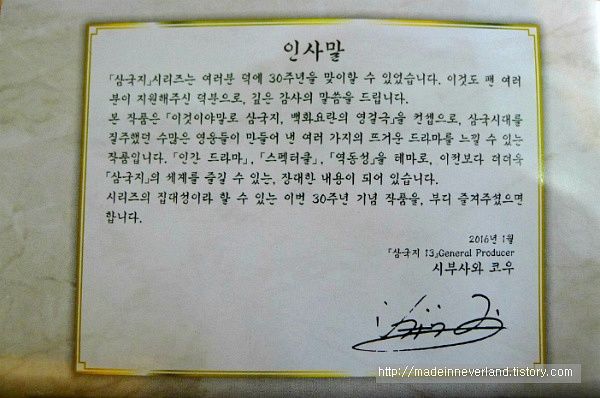 인사말
「삼국지」시리즈는 여러분 덕에 30주년을 맞이할 수 있었습니다. 이것도 팬 여러
분이 지원해주신 덕분으로, 깊은 감사의 말씀을 드립니다.
본 작품은 「이것이야말로 삼국지, 백화요란의 영걸국」을 컨셉으로, 삼국시대를
질주했던 수많은 영웅들이 만들어 낸 여러 가지의 뜨거운 드라마를 느낄 수 있는
작품입니다. 「인간 드라마」, 「스펙터클」, 「역동성」을 테마로, 이전보다 더더욱
「삼국지」의 세계를 즐길 수 있는, 장대한 내용이 되어 있습니다.
시리즈의 집대성이라 할 수 있는 이번 30주년 기념 작품을, 부디 즐겨주셨으면
합니다.
2016년 1월
「삼국지 13」General Producer
시부사와 코우
http://madeinneverland.tistory.com